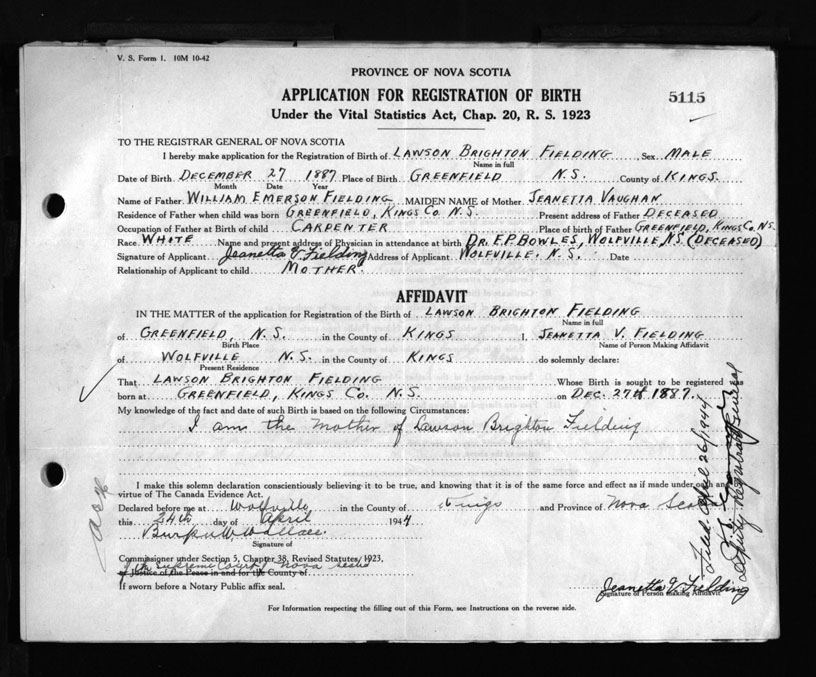 V. S. Form 1. 10M 10-42
PROVINCE OF NOVA SCOTIA
APPLICATION FOR REGISTRATION OF BIRTH
5115
Under the Vital Statistics Act, Chap. 20, R. S. 1923
TO THE REGISTRAR GENERAL OF NOVA SCOTIA
I hereby make application for the Registration of Birth of LAWSON BRIGHTON FIELDING Sex MALE
Name in full
Date of Birth DECEMBER 27 1887 Place of Birth GREENFIELD N.S. County of KINGS.
Month Date Year
Name of Father WILLIAM EMERSON FIELDING MAIDEN NAME of Mother JEANETTA VAUGHAN
Residence of Father when child was born GREENFIELD, KINGS CO. N.S. Present address of Father DECEASED
Occupation of Father at Birth of child CARPENTER Place of birth of Father GREENFIELD, KINGS CO. N.S.
Race WHITE Name and present address of Physician in attendance at birth DR. E.P. BOWLES, WOLFVILLE, N.S. (DECEASED)
Signature of Applicant Jeanetta V. Fielding Address of Applicant WOLFVILLE. N.S. Date
Relationship of Applicant to child MOTHER.
AFFIDAVIT
IN THE MATTER of the application for Registration of the Birth of LAWSON BRIGHTON FIELDING
Name in full
of GREENFIELD, N.S. in the County of KINGS I, JEANETTA V. FIELDING
Birth Place Name of Person Making Affidavit
of WOLFVILLE N.S. in the County of KINGS do solemnly declare:
Present Residence
That LAWSON BRIGHTON FIELDING Whose Birth is sought to be registered was
born at GREENFIELD, KINGS CO. N.S. on DEC. 27th 1887.
My knowledge of the fact and date of such Birth is based on the following Circumstances:
I am the Mother of Lawson Brighton Fielding
I make this solemn declaration conscientiously believing it to be true, and knowing that it is of the same force and effect as if made under oath and
virtue of The Canada Evidence Act.
Declared before me at Wolfville in the County of Kings and Province of Nova Scotia
this 24th day of April 1944
Wallace
Signature of
Commissioner under Section 5, Chapter 38, Revised Statutes, 1923,
of the Supreme Court Nova Scotia
or Justice of the Peace in and for the County of
If sworn before a Notary Public affix seal.
Jeanetta V. Fielding
Signature of Person making Affidavit
For Information respecting the filling out of this Form, see Instructions on the reverse side.
Filed April 26/1944
Deputy Registrar General